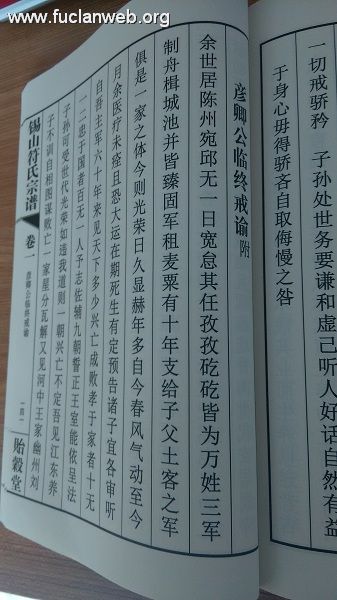 www.fuclanweb.org
一切戒骄矜 子孙处世务要谦和虚己听人好话自然有益
于身心毋得骄吝自取侮慢之咎
彦卿公临终戒谕 附
余世居陈州宛邱无一日宽怠其任孜孜矻矻皆为万姓三军
制舟楫城池并皆臻固军租麦粟有十年支给子父土客之军
俱是一家之体今则光荣日久显赫年多自今春风气动至今
月余医疗未痊且恐大运在期死生有定预告诸子宜各审听
自吾主军六十年来见天下多少兴亡成败孝于家者十无
一二忠于国者百无一人予志佐辅九朝誓正王室能依呈法
子孙可受世代光荣如违我道则一朝兴亡不定吾见江东养
子不训自相图谋败亡一家星分瓦解又见河中王家幽州刘
锡山符氏宗谱
卷一
彦卿公临终戒谕
贻榖堂